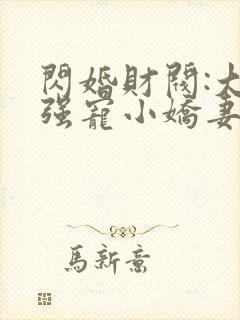 閃婚財閥:大
强寵小嬌妻
馬新意